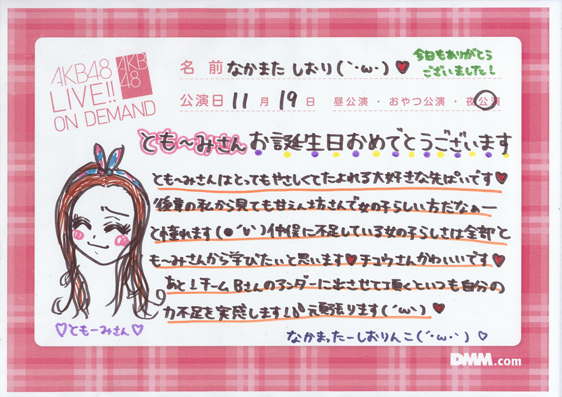 AKB48
LIVE!!
ON DEMAND
AKB
48
名 前 なかまた しおり(`･ω･´)♥
今日もありがとう
ございました!
公演日 11 月 19 日 昼公演・おやつ公演・夜公演
とも〜みさん お誕生日おめでとうございます
とも〜みさんはとってもやさしくてたよれる大好きな先ぱいです♥
後輩の私から見ても甘えん坊さんで女の子らしい方だなぁー
と憧れます 仲俣に不足している女の子らしさは全部と
も〜みさんから学びたいと思います♥チュウさんかわいいです♥
あと!チームBさんのアンダーに出させて頂くといつも自分の
力不足を実感します!! 頑張ります(´ω`)♥
♡ともーみさん♡
なかまったーしおりんこ(´･ω･`)♡
DMM.com